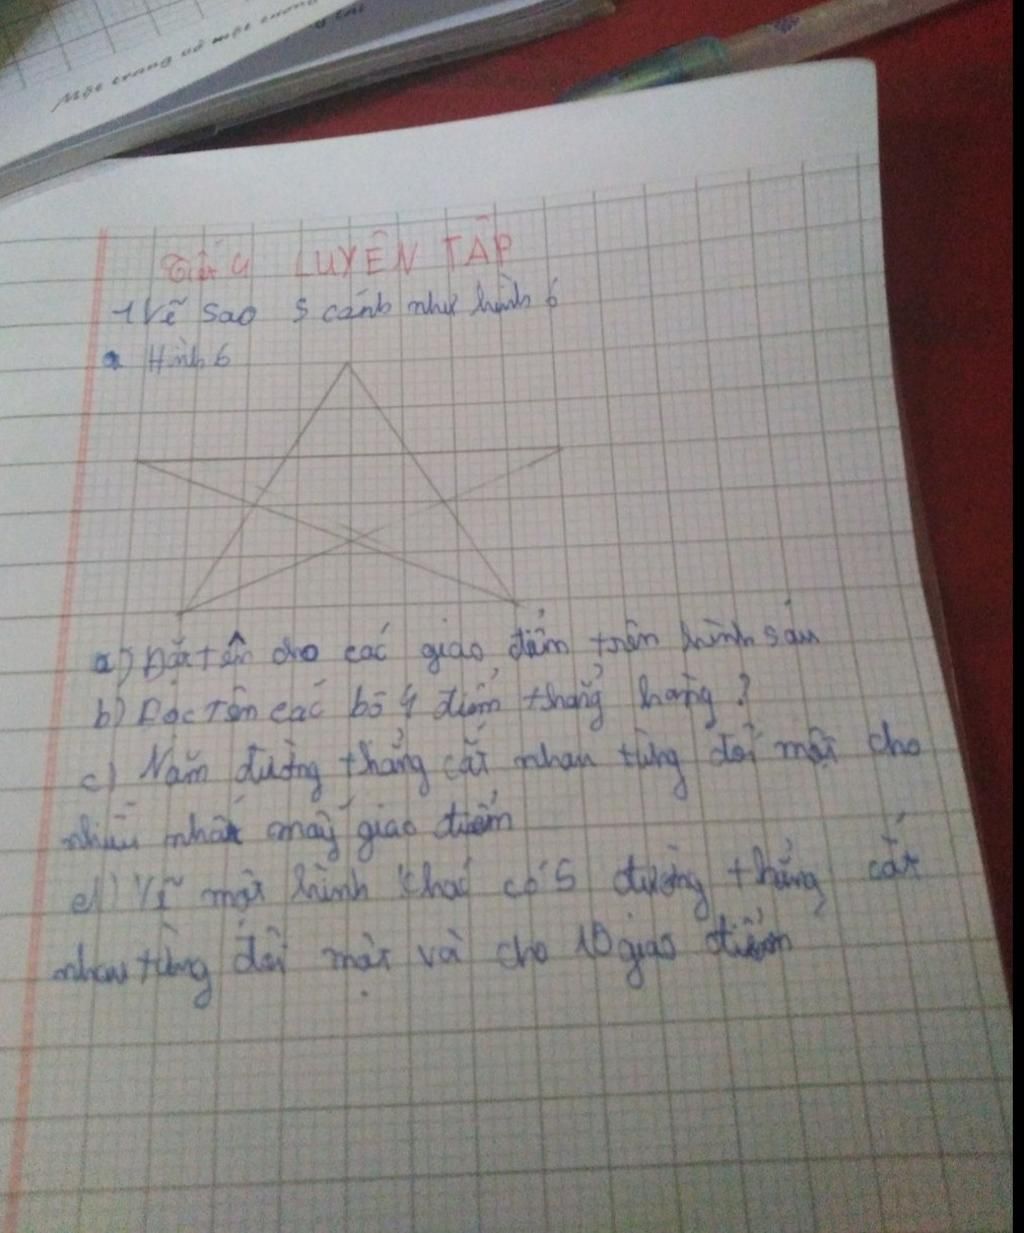 Một trang vở một tương
Tiết 4 LUYỆN TẬP
1 Vẽ sao 5 cánh như hình 6
Hình 6
a) Đặt tên cho các giao điểm trên hình sáu
b) Đọc tên các bộ 4 điểm thẳng hàng?
c) Năm đường thẳng cắt nhau từng đôi một cho
nhiều nhất mấy giao điểm
d) Vẽ một hình khác có 5 đường thẳng cắt
nhau từng đôi một và cho 10 giao điểm